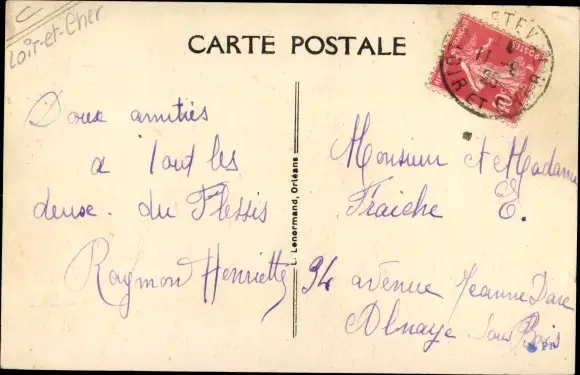 C
Loir-et-Cher
CARTE POSTALE
Doux amitiés
a tout les
deuse. du Flessis
Raymon Henriette
L. Lenormand, Orléans
Monsieur et Madame
Fraiche E.
94 avenue Jeanne Darc
Olnaye sous Bois
POSTES
LOIR ET CHER